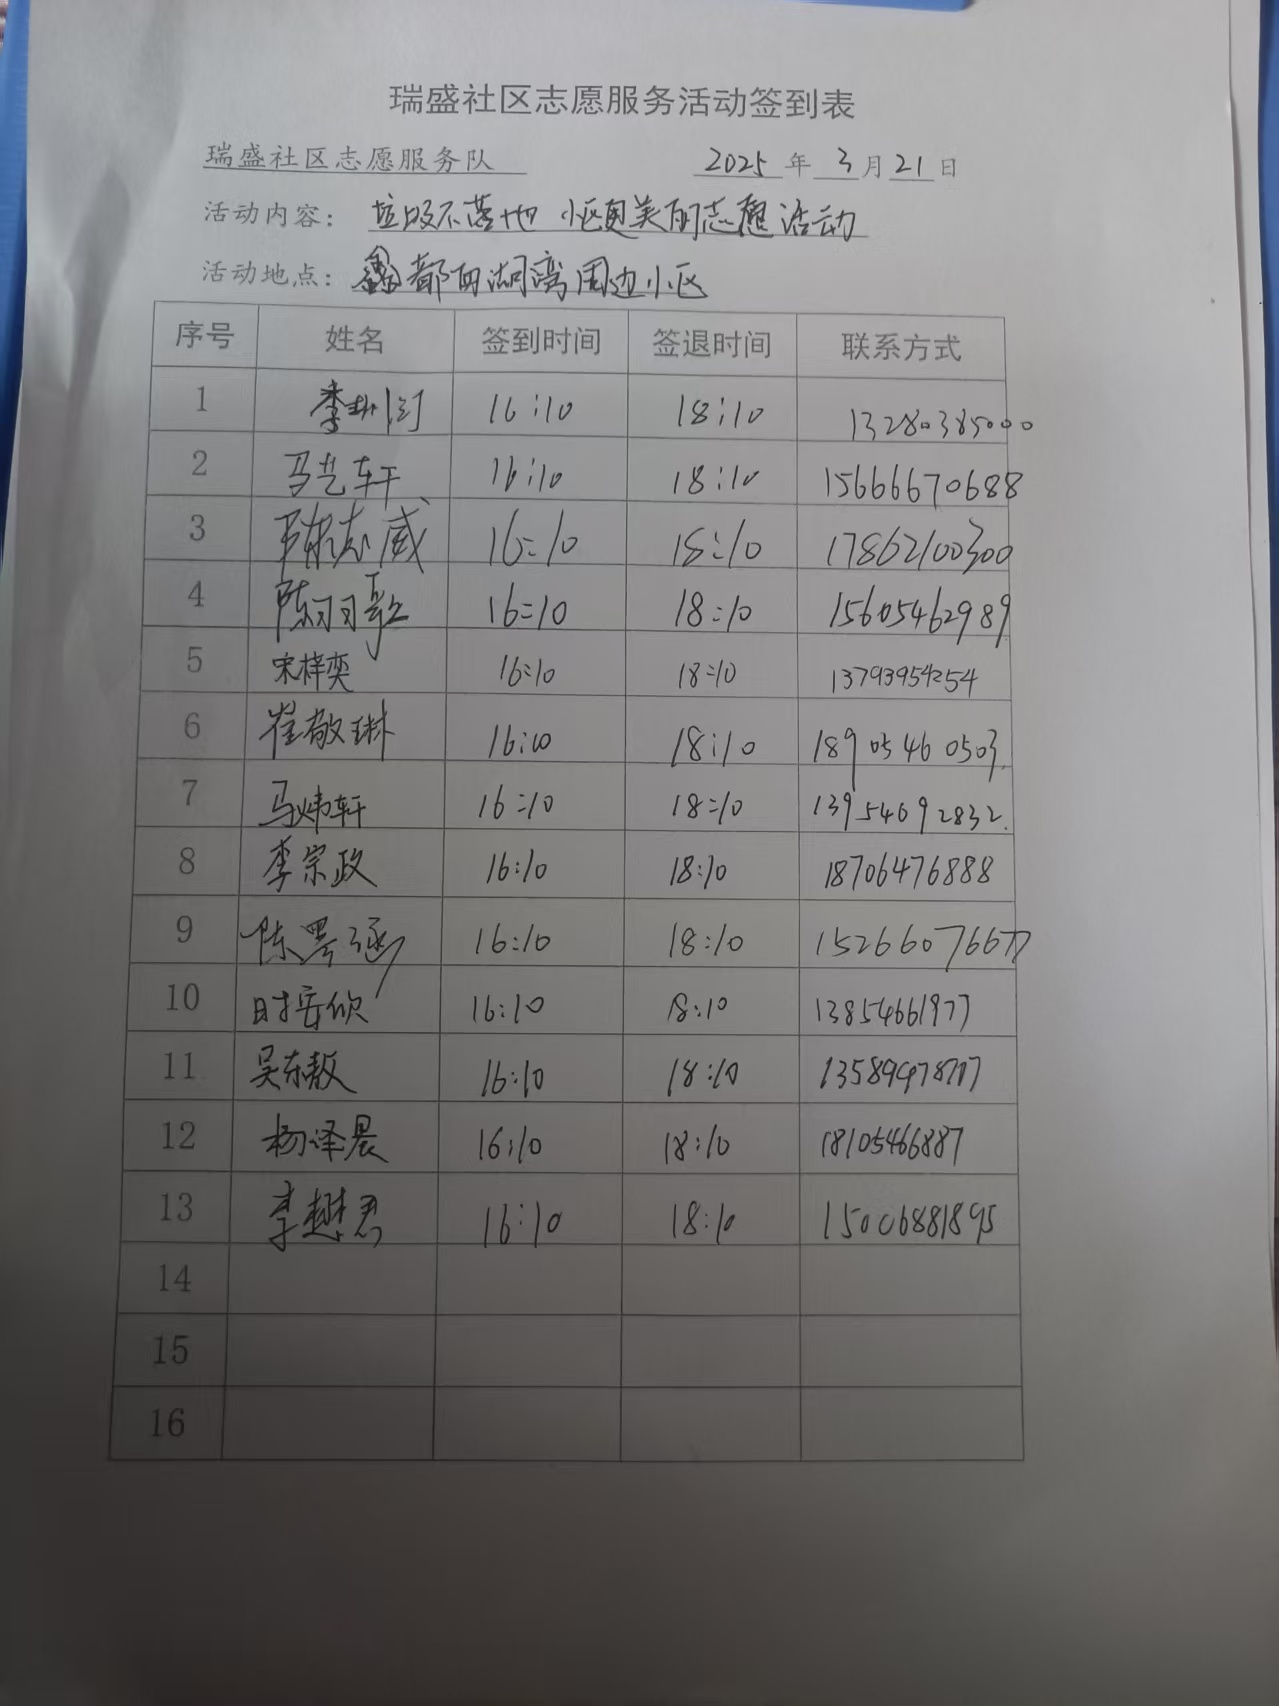 瑞盛社区志愿服务活动签到表
瑞盛社区志愿服务队 2025 年 3 月 21 日
活动内容： 垃圾不落地 小区更美丽志愿活动
活动地点： 鑫都西湖湾周边小区
序号 姓名 签到时间 签退时间 联系方式
1 李 16:10 18:10 13280385000
2 马艺轩 16:10 18:10 15666670688
3 陈志威 16:10 18:10 17862100300
4 陈羽歌 16:10 18:10 15605462989
5 宋梓奕 16:10 18:10 13793954254
6 崔敬琳 16:10 18:10 18905460503
7 马炜轩 16:10 18:10 13954692832
8 李宗政 16:10 18:10 18706476888
9 陈墨涵 16:10 18:10 15266076677
10 时安欣 16:10 18:10 13854661977
11 吴东敖 16:10 18:10
12 杨泽晨 16:10 18:10 18105466887
13 李懋君 16:10 18:10 15006881895
14
15
16